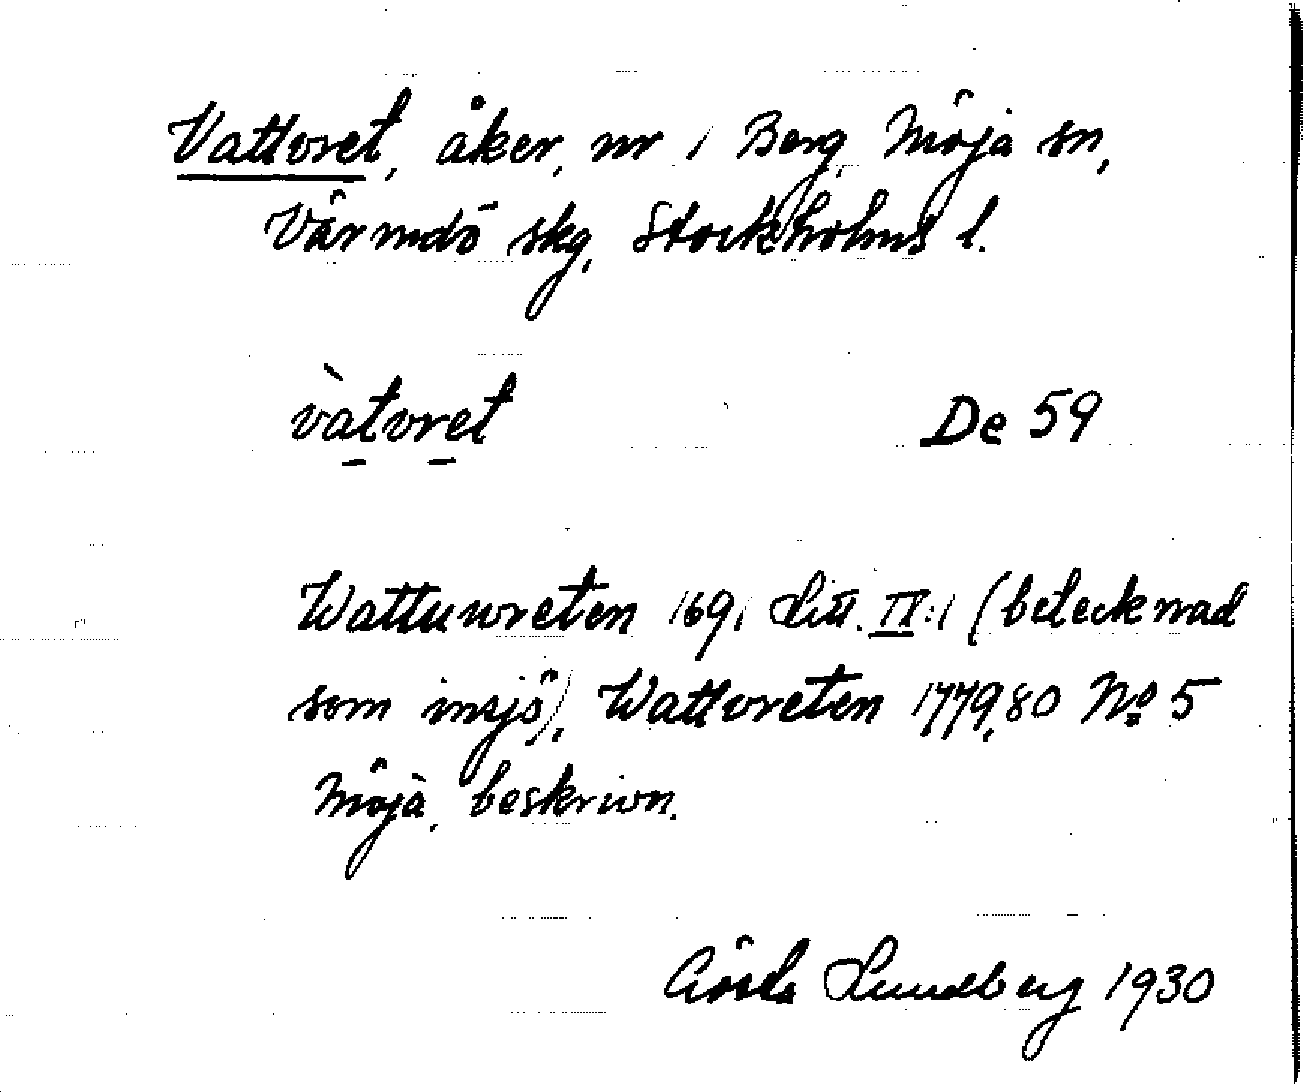 Vattvret, åker, nr 1 Berg, Möja sn,
Värmdö skg, Stockholms l.
vàtvret De 59
Wattuwreten 1691 Litt. II:1 (betecknad
som insjö), Wattvreten 1779,80 No 5
Möja, beskrivn.
Gösta Lundberg 1930